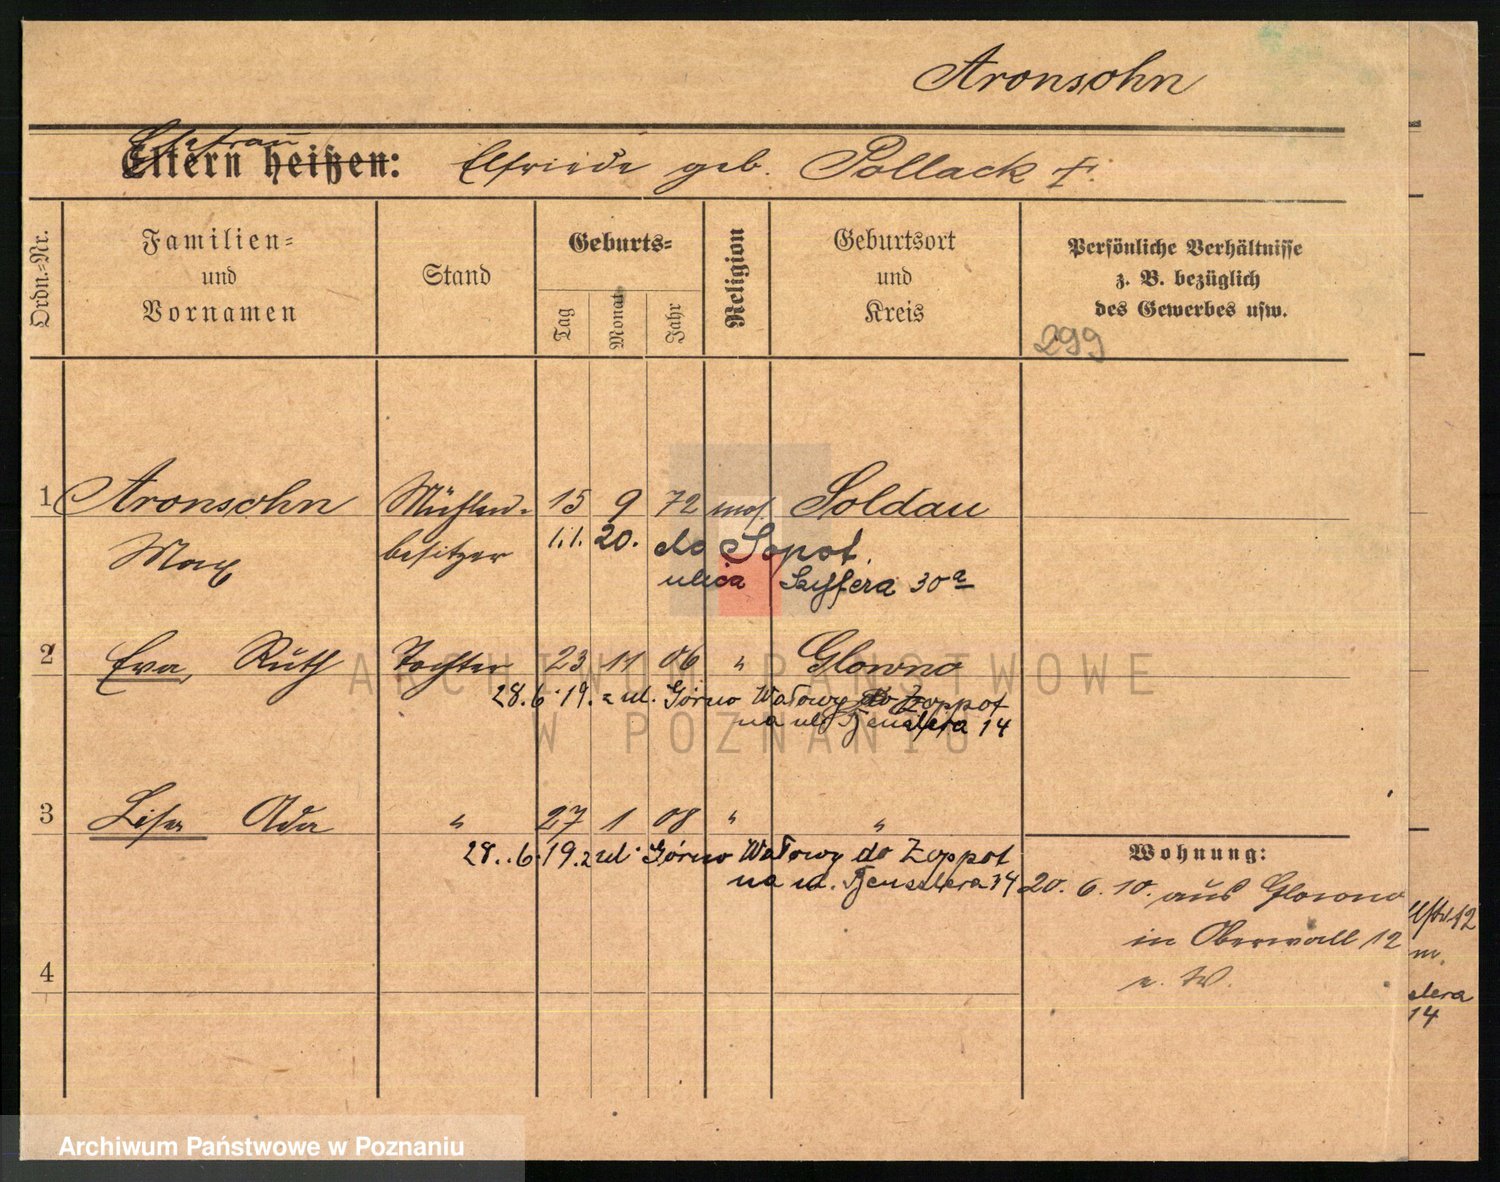 Aronsohn
Ehefrau
Eltern heißen: Elfriede geb. Pollack †.
Ordn.-Nr.
Familien-
und
Vornamen
Stand
Geburts-
Tag
Monat
Jahr
Religion
Geburtsort
und
Kreis
Persönliche Verhältnisse
z. B. bezüglich
des Gewerbes usw.
299
1 Aronsohn Mühlen- 15 9 72 mos. Soldau
Max besitzer 1.1.20. do Sopot,
ulica 30a
2 Eva, Ruth Tochter 23 11 06 " Glowno
28.6.19. z ul. Górno Wałowy do Zoppot
na ul. 14
3 Lisa Ada " 27 1 08 " "
28.6.19. z ul. Górno Wałowy do Zoppot
na ul. 14
Wohnung:
20. 6. 10. aus Glowno
in Oberwall 12
n. W.
4
12
m.
slera
14
ARCHIWUM PAŃSTWOWE
W POZNANIU
Archiwum Państwowe w Poznaniu